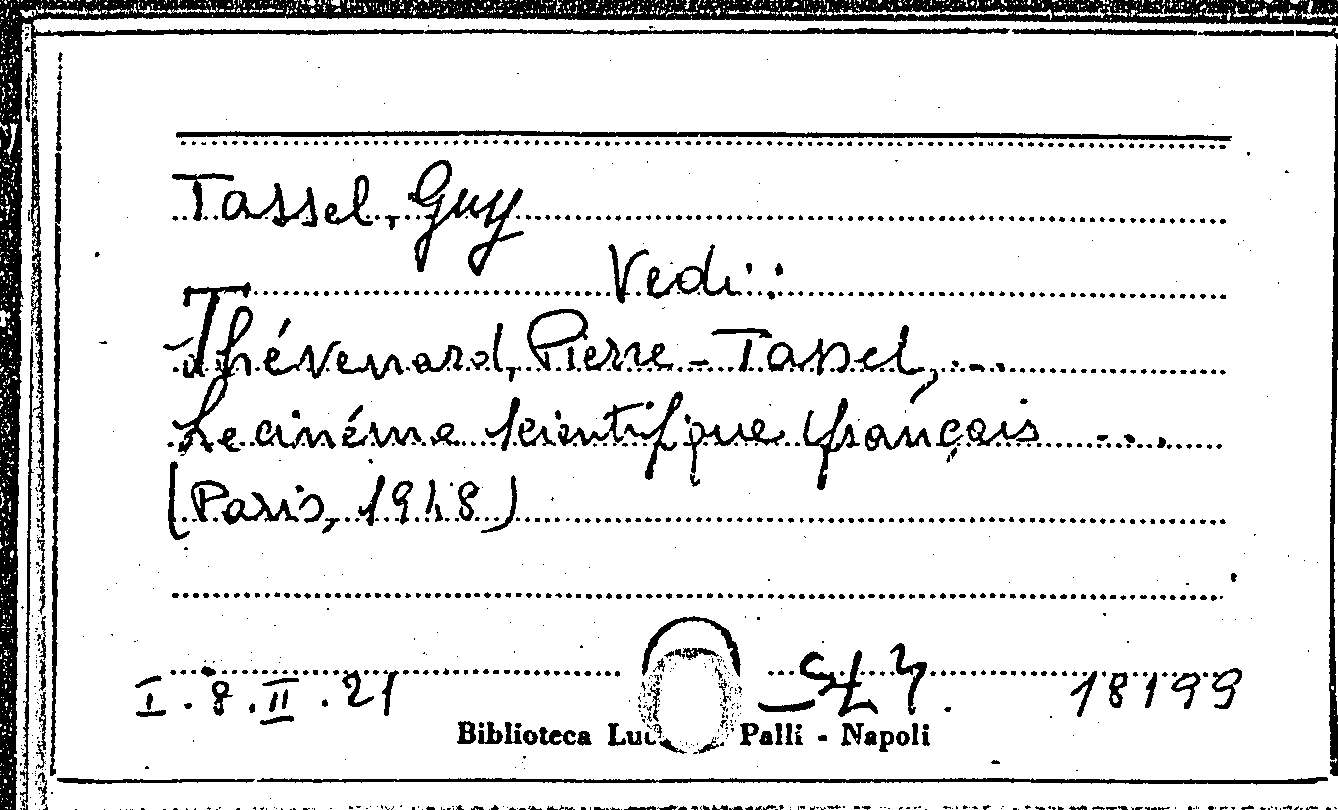 Tassel, Guy
Vedi:
Thévenard, Pierre - Tassel, ...
Le cinéma scientifique français ...
(Paris, 1948)
I.8.II.21 18199
Biblioteca Palli - Napoli